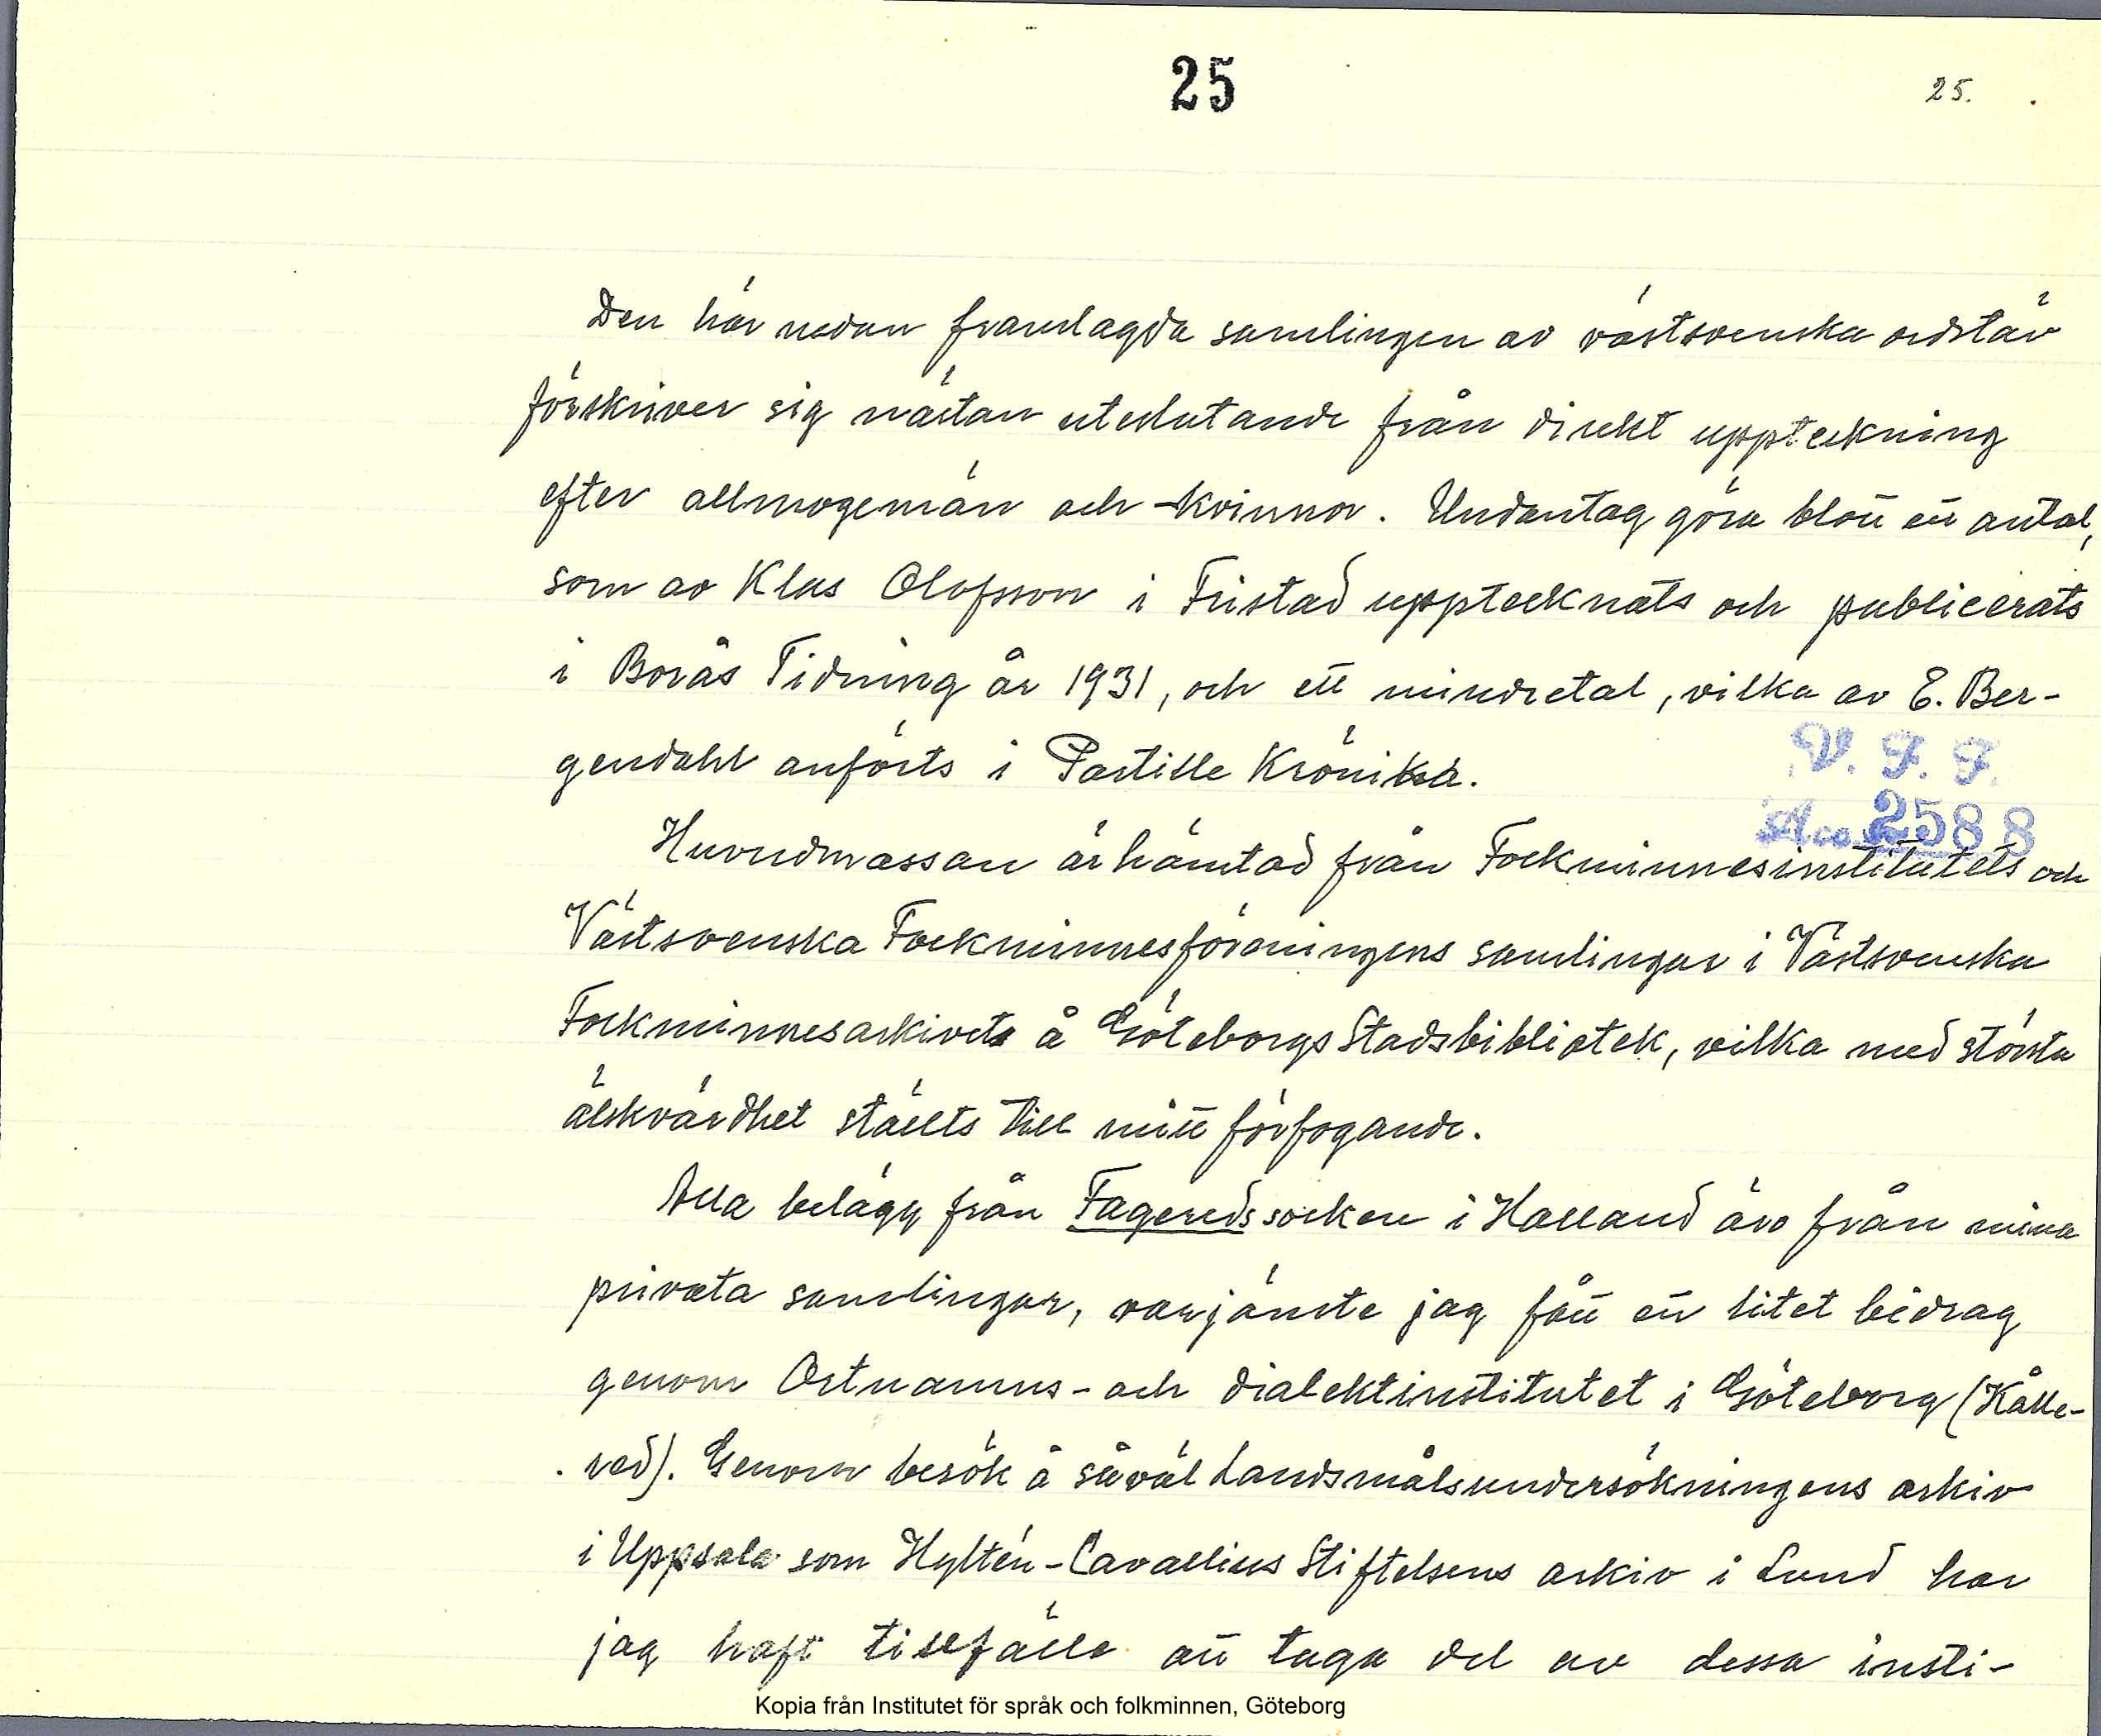 25
25.
Den här nedan framlagda samlingen av västsvenska ordstäv
förskriver sig nästan uteslutande från direkt uppteckning
efter allmogemän och -kvinnor. Undantag göra blott ett antal,
som av Klas Olofsson i Fristad upptecknats och publicerats
i Borås Tidning år 1931, och ett mindretal, vilka av E. Ber-
gendahl anförts i Partille Krönika.
V. F. F.
Acc. 2588
Huvudmassan är hämtad från Folkminnesinstitutets och
Västsvenska Folkminnesföreningens samlingar i Västsvenska
Folkminnesarkivet å Göteborgs Stadsbibliotek, vilka med största
älskvärdhet ställts till mitt förfogande.
Alla belägg från Fagereds socken i Halland äro från mina
privata samlingar, varjämte jag fått ett litet bidrag
genom Ortnamns- och dialektinstitutet i Göteborg (Kålle-
red). Genom besök å såväl Landsmålsundersökningens arkiv
i Uppsala som Hyltén-Cavallius Stiftelsens arkiv i Lund har
jag haft tillfälle att taga del av dessa insti-
Kopia från Institutet för språk och folkminnen, Göteborg